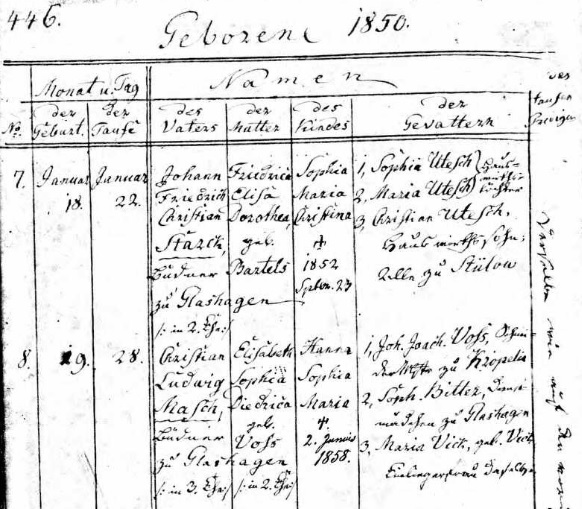 446.
Geborene 1850.
Monat u. Tag
Namen
des
No.
der Geburt.
der Taufe
des Vaters
der Mutter
des Kindes
der Gevattern
taufenden
7.
Januar
18.
Januar
22.
Johann
Friedrich
Christian
Starck,
Büdner
zu Glashagen
/: in 2. Ehe:/
Friedrica
Elisa
Dorothea,
geb.
Bartels
Sophia
Maria
Christina
†
1852
Sptbr. 23
1, Sophia Utesch
2, Maria Utesch
Haus-
wirths
töchter
3, Christian Utesch,
Hauswirthssohn,
alle zu Stülow
8.
19.
28.
Christian
Ludwig
Masch,
Büdner
zu Glashagen
/: in 3. Ehe:/
Elisabeth
Sophia
Diedrica
geb.
Voss
/: in 2. Ehe:/
Hanna
Sophia
Maria
†
2. Junius
1858.
1, Joh. Joach. Voss,
zu Kröpelin
2, Soph. Bitter, Dienst-
mädchen zu Glashagen
3, Maria Vick, geb. Vick
Einliegerfrau daselbst